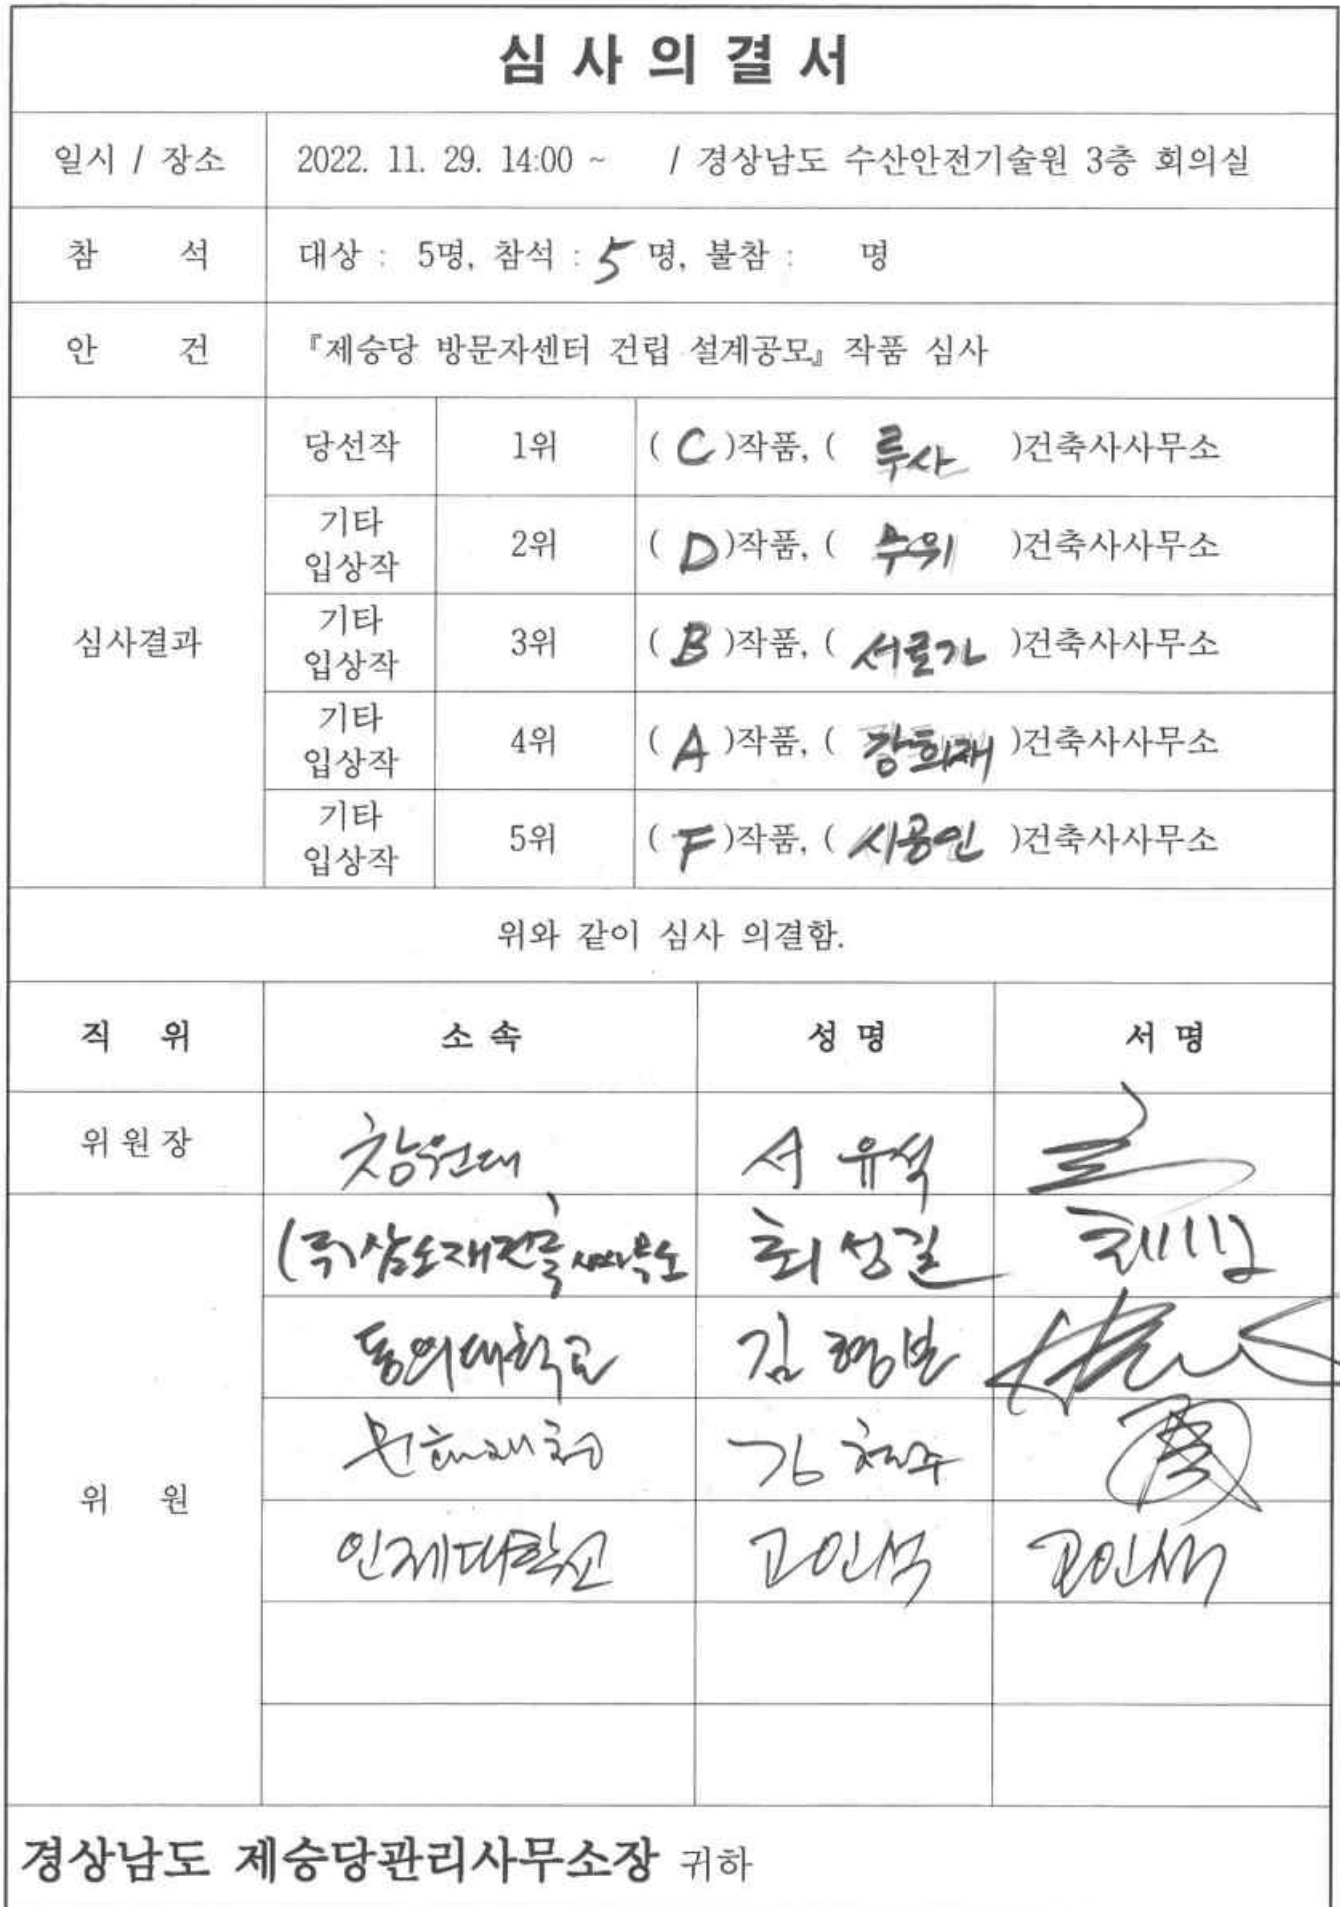 심사의결서
일시 / 장소 2022. 11. 29. 14:00 ~ / 경상남도 수산안전기술원 3층 회의실
참 석 대상 : 5명, 참석 : 5 명, 불참 : 명
안 건 『제승당 방문자센터 건립 설계공모』 작품 심사
심사결과
당선작 1위 ( C )작품, ( 루사 )건축사사무소
기타 입상작 2위 ( D )작품, ( 수위 )건축사사무소
기타 입상작 3위 ( B )작품, ( 서로가 )건축사사무소
기타 입상작 4위 ( A )작품, ( 강희재 )건축사사무소
기타 입상작 5위 ( F )작품, ( 시공인 )건축사사무소
위와 같이 심사 의결함.
직 위 소 속 성 명 서 명
위원장 창원대 서유석
위 원
(주)삼소재건축사사무소 최성길
동의대학교 김형보
문화재청
인제대학교 고인석 고인석
경상남도 제승당관리사무소장 귀하